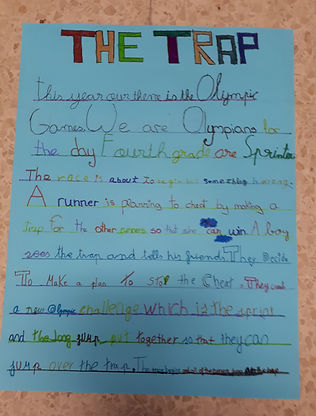 THE TRAP
This year our theme is the Olympic
Games. We are Olympians for
the day Fourth grade are Sprinters
The race is about to begin but something
A runner is planning to cheat by making a
trap for the other so that she can win A boy
sees the trap and tells his friends. They
To make a plan to stop the cheat. They
a new Olympic challenge which is the sprint
and the long jump put together so that they can
jump over the trap. The race begins and all of the